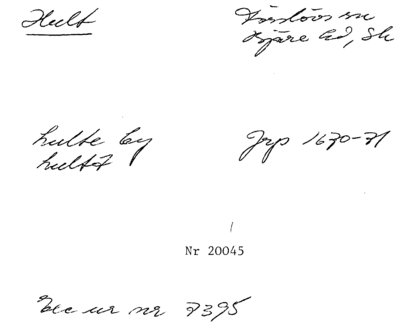 Hult
Förslövs sn
Bjäre hd, Sk
hulte by
hultt
Jrp 1670-71
Nr 20045
Exc ur nr 7395